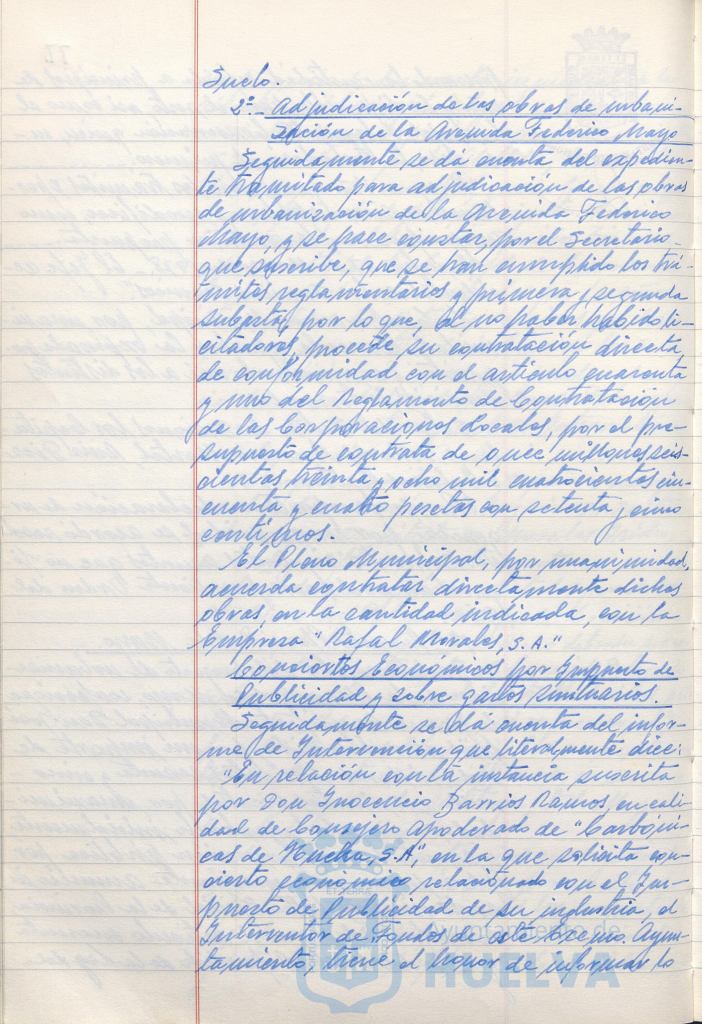 Suelo.
2º.- Adjudicación de las obras de urbani-
zación de la Avenida Federico Mayo
Seguidamente se dá cuenta del expedien-
te tramitado para adjudicación de las obras
de urbanización de la Avenida Federico
Mayo, y se hace constar, por el Secretario
que suscribe, que se han cumplido los trá-
mites reglamentarios y primera y segunda
subasta, por lo que, al no haber habido li-
citadores, procede su contratación directa,
de conformidad con el artículo cuarenta
y uno del Reglamento de Contratación
de las Corporaciones Locales, por el pre-
supuesto de contrata de once millones seis-
cientas treinta y ocho mil cuatrocientas cin-
cuenta y cuatro pesetas con setenta y cinco
centimos.
El Pleno Municipal, por unanimidad,
acuerda contratar directamente dichas
obras, en la cantidad indicada, con la
Empresa "Rafal Morales, S.A."
Conciertos Económicos por Impuesto de
Publicidad y sobre gastos suntuarios.
Seguidamente se da cuenta del infor-
me de Intervención que literalmente dice:
"En relación con la instancia suscrita
por Don Inocencio Barrios Ramos, en cali-
dad de Consejero Apoderado de "Carbóni-
cas de Huelva, S.A", en la que solicita con-
cierto económico relacionado con el Im-
puesto de Publicidad de su industria, el
Interventor de Fondos de este Excmo. Ayun-
tamiento, tiene el honor de informar lo
Ayuntamiento de
HUELVA